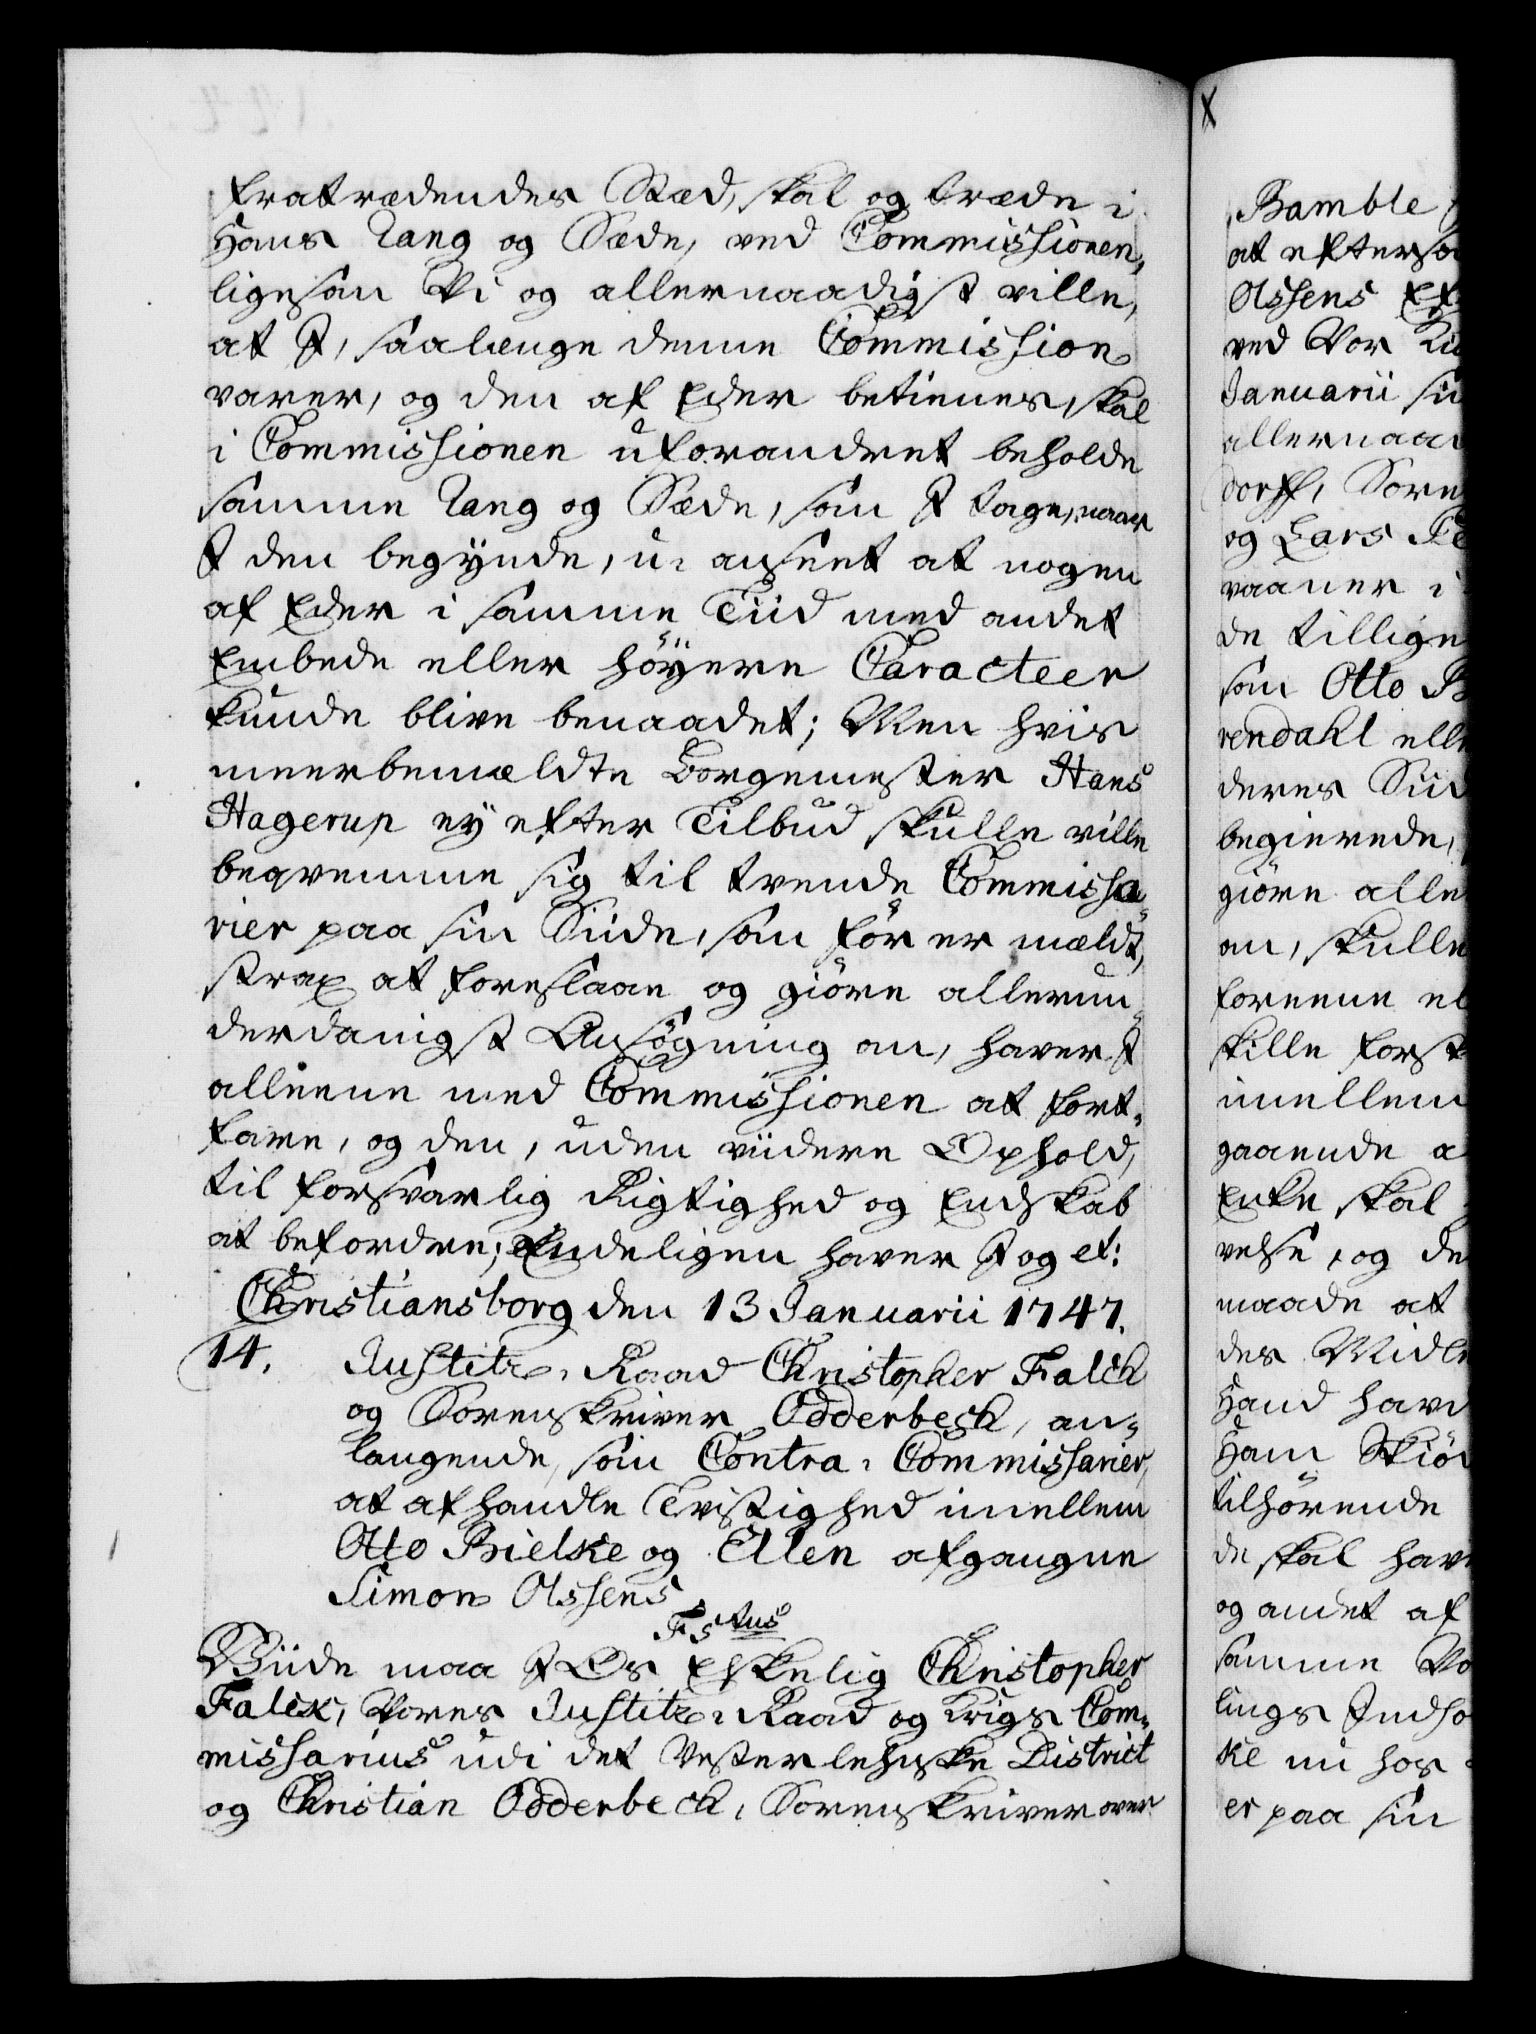 fratrædendes Stæd, skal og træde i
Hans Rang og Sæde, ved Commissionen,
ligesom Vi og allernaadigst ville,
at I, saalænge denne Commission
varer, og den af Eder betienes, skal
i Commissionen uforandret beholde
samme Rang og Sæde, som I tage, naar
I den begynde, u-anseet at nogen
af Eder i samme Tiid med andet
Embede eller höyere Caracteer
kunde blive benaadet; Men hvis
meerbemældte Borgemester Hans
Hagerup ey efter Tilbud skulle ville
beqvemme sig til trende Commissa-
rier paa sin Siide, som för er mældt,
strax at foreslaae og giöre allerun-
derdanigst Ansögning om, haver I
alleene med Commissionen at fort-
fare, og den, uden viidere Ophold,
til forsvarlig Rigtighed og Endskab
at befordre; Endeligen haver I og et:
Christiansborg den 13 Januarii 1747.
14. Justitz-Raad Christopher Falck
og Sorenskriver Odderbech, an-
langende, som Contra-Commissarier,
at afhandle Tvistighed imellem
Otto Bielke og Ellen afgangne
Simon Olssens
Fs tus
Viide maa I Os Elskelig Christopher
Falck, Vores Justitz-Raad og Krigs Com-
missarius udi det Vesterlehnske District
og Christian Odderbech, Sorenskriver over
Bamble
at efterso
Olssens Ef
ved Vor
Januarii
allernaa
dorff, Soren
og Lars
vaaner i
de tillige
som Otto B
rendahl elle
deres Siid
begierede,
giöre alle
om, skulle
foreene el
skille forst
imellem
gaaende a
Enke skal
velse, og de
maade at
des Midle
Hand havd
Ham Skiöd
tilhörende
de skal hav
og andet af
samme Vo
lings Indho
ke nu hos
er paa sin